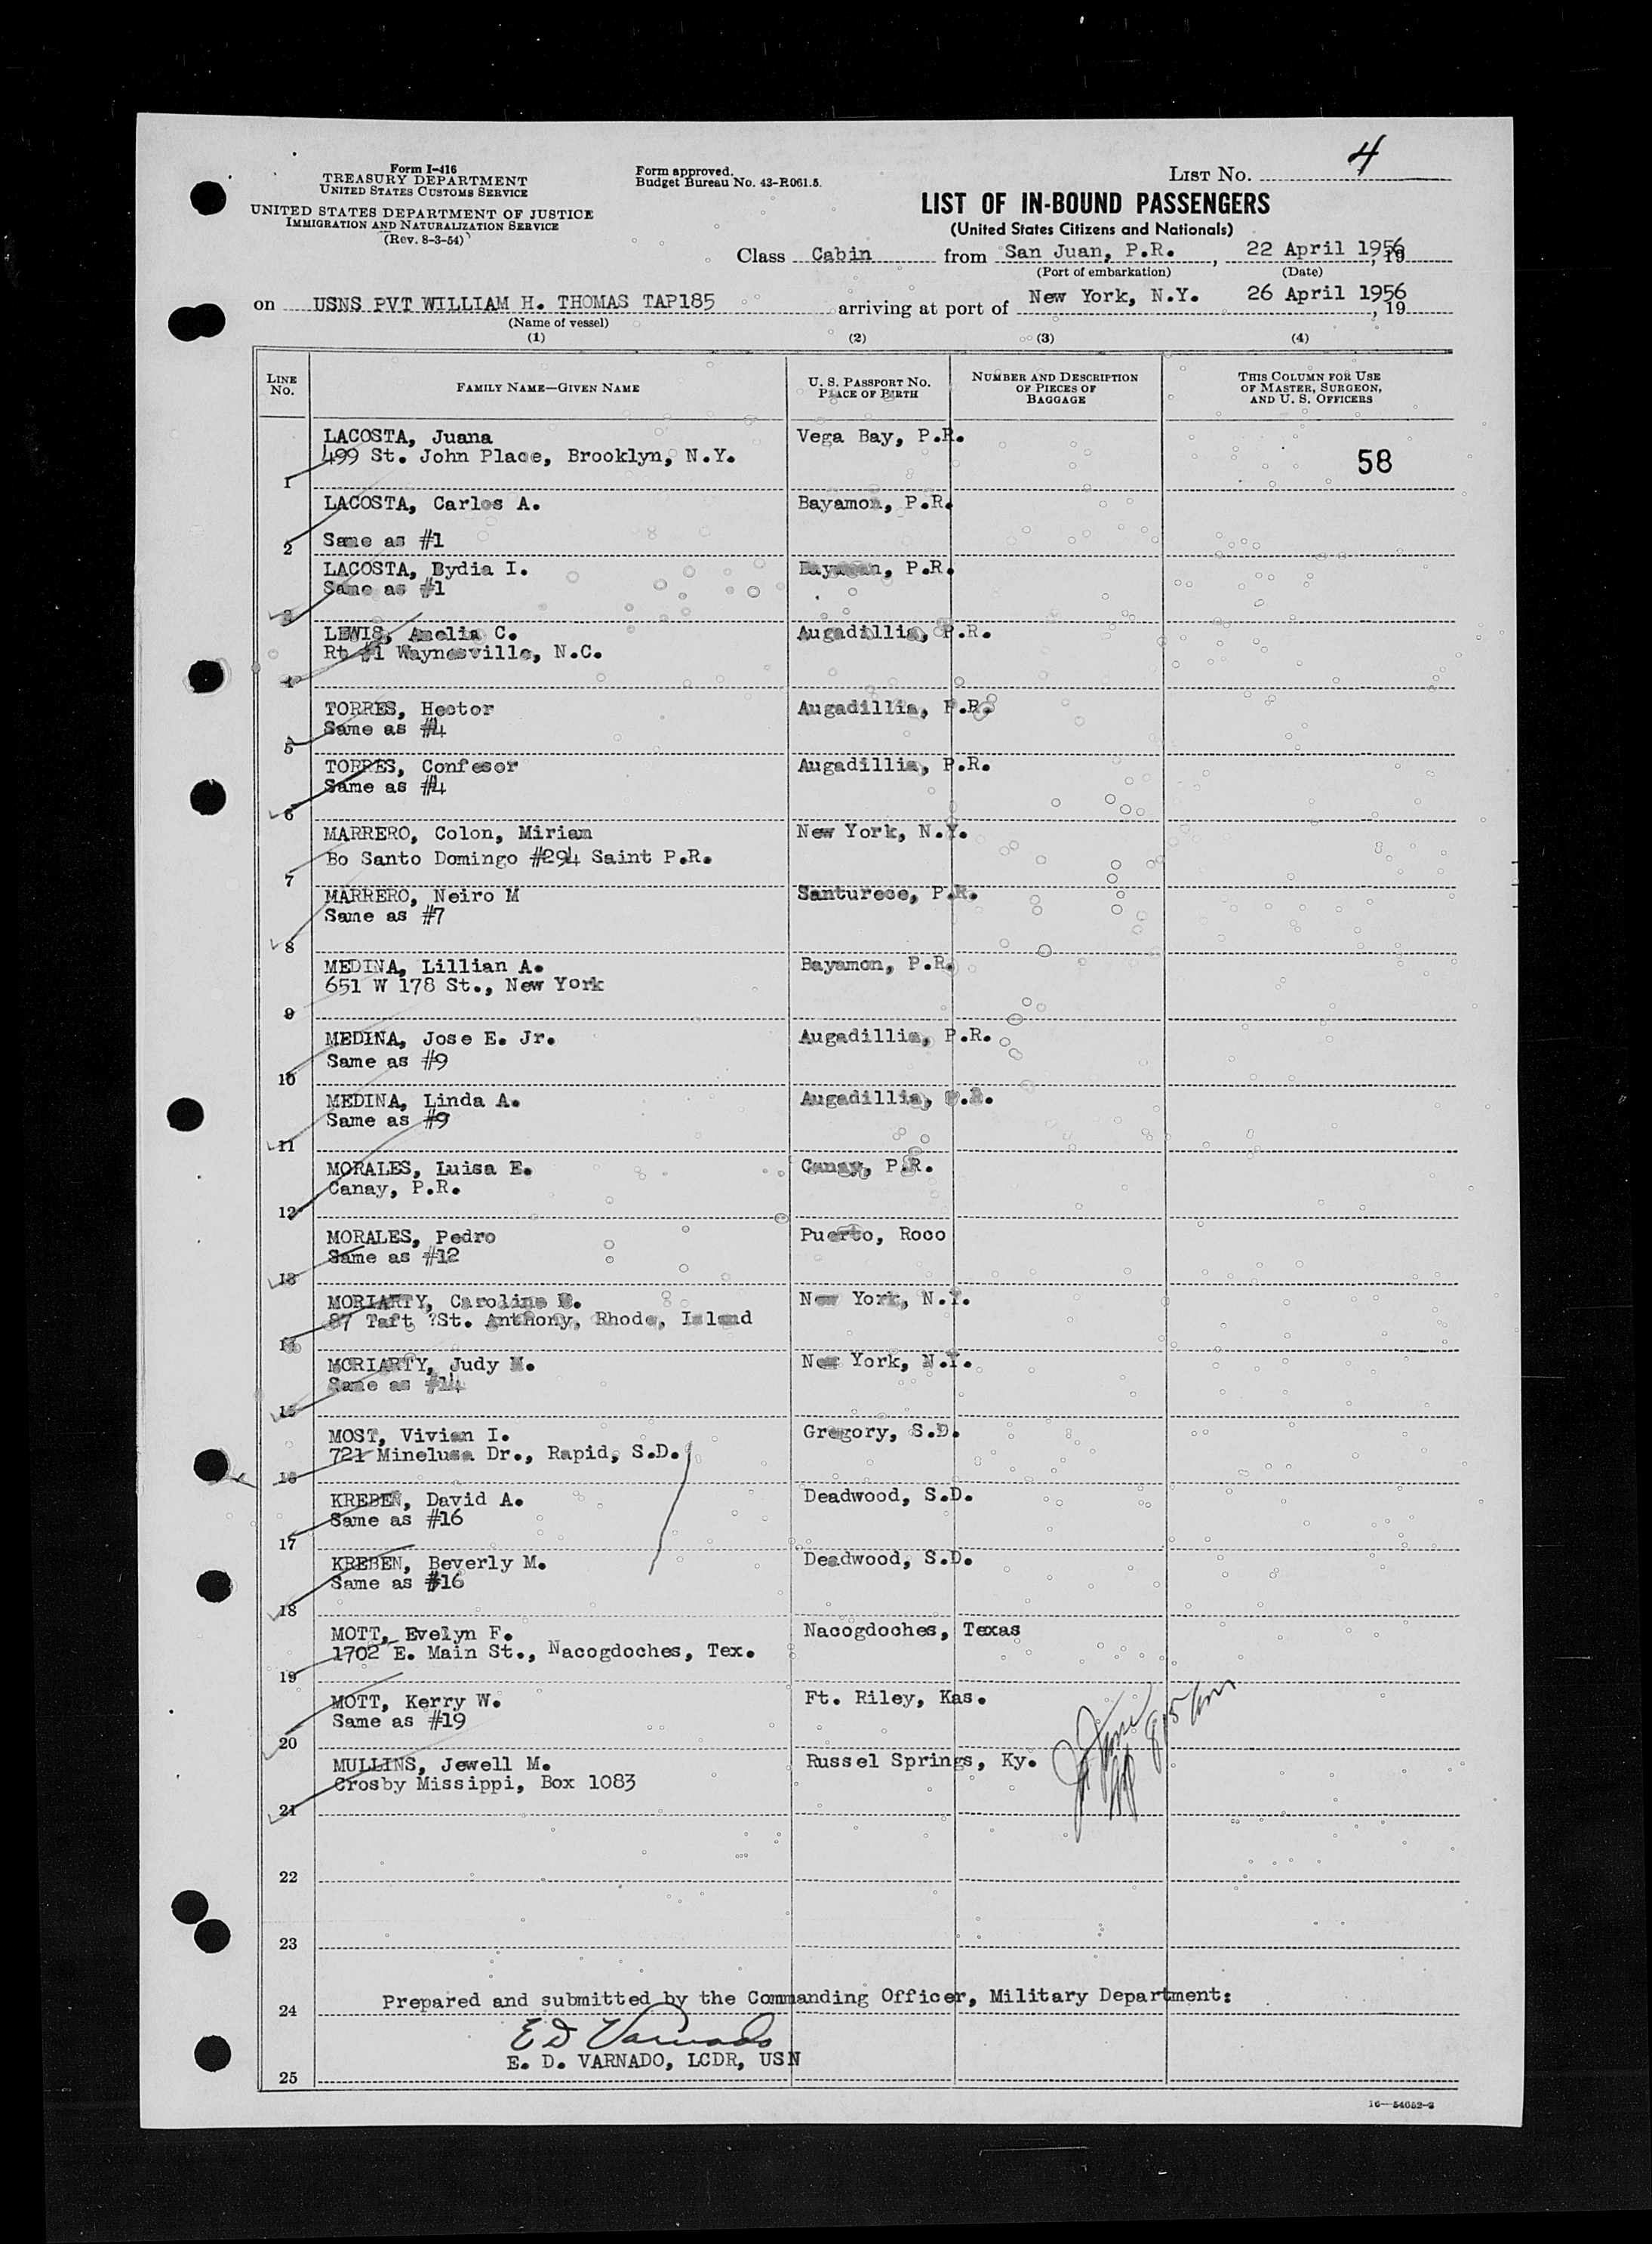 Form I-416
TREASURY DEPARTMENT
UNITED STATES CUSTOMS SERVICE
UNITED STATES DEPARTMENT OF JUSTICE
IMMIGRATION AND NATURALIZATION SERVICE
(Rev. 8-3-54)
Form approved.
Budget Bureau No. 43-R061.5.
LIST No. 4
LIST OF IN-BOUND PASSENGERS
(United States Citizens and Nationals)
Class Cabin from San Juan, P.R., 22 April 1956, 19
(Port of embarkation) (Date)
on USNS PVT WILLIAM H. THOMAS TAP185 arriving at port of New York, N.Y. 26 April 1956, 19
(Name of vessel)
(1) (2) (3) (4)
LINE No. FAMILY NAME—GIVEN NAME U. S. PASSPORT No. PLACE OF BIRTH NUMBER AND DESCRIPTION OF PIECES OF BAGGAGE THIS COLUMN FOR USE OF MASTER, SURGEON, AND U. S. OFFICERS
LACOSTA, Juana Vega Bay, P.R.
499 St. John Place, Brooklyn, N.Y. 58
1
LACOSTA, Carlos A. Bayamon, P.R.
2 Same as #1
LACOSTA, Bydia I. Bayamon, P.R.
Same as #1
3
LEWIS, Amelia C. Augadillia, P.R.
Rt #1 Waynesville, N.C.
4
TORRES, Hector Augadillia, P.R.
Same as #4
5
TORRES, Confesor Augadillia, P.R.
Same as #4
6
MARRERO, Colon, Miriam New York, N.Y.
Bo Santo Domingo #294 Saint P.R.
7
MARRERO, Neiro M Santurece, P.R.
Same as #7
8
MEDINA, Lillian A. Bayamon, P.R.
651 W 178 St., New York
9
MEDINA, Jose E. Jr. Augadillia, P.R.
Same as #9
10
MEDINA, Linda A. Augadillia, P.R.
Same as #9
11
MORALES, Luisa E. Canay, P.R.
Canay, P.R.
12
MORALES, Pedro Puerto, Roco
Same as #12
13
MORIARTY, Caroline New York, N.Y.
87 Taft ?St. Anthony, Rhode, Island
14
MORIARTY, Judy M. New York, N.Y.
Same as #14
15
MOST, Vivian I. Gregory, S.D.
721 Minelusa Dr., Rapid, S.D.
16
KREBEN, David A. Deadwood, S.D.
Same as #16
17
KREBEN, Beverly M. Deadwood, S.D.
Same as #16
18
MOTT, Evelyn F. Nacogdoches, Texas
1702 E. Main St., Nacogdoches, Tex.
19
MOTT, Kerry W. Ft. Riley, Kas.
Same as #19
20
MULLINS, Jewell M. Russel Springs, Ky.
Crosby Missippi, Box 1083
21
22
23
Prepared and submitted by the Commanding Officer, Military Department:
24
E D Varnado
E. D. VARNADO, LCDR, USN
25
16—54052-3